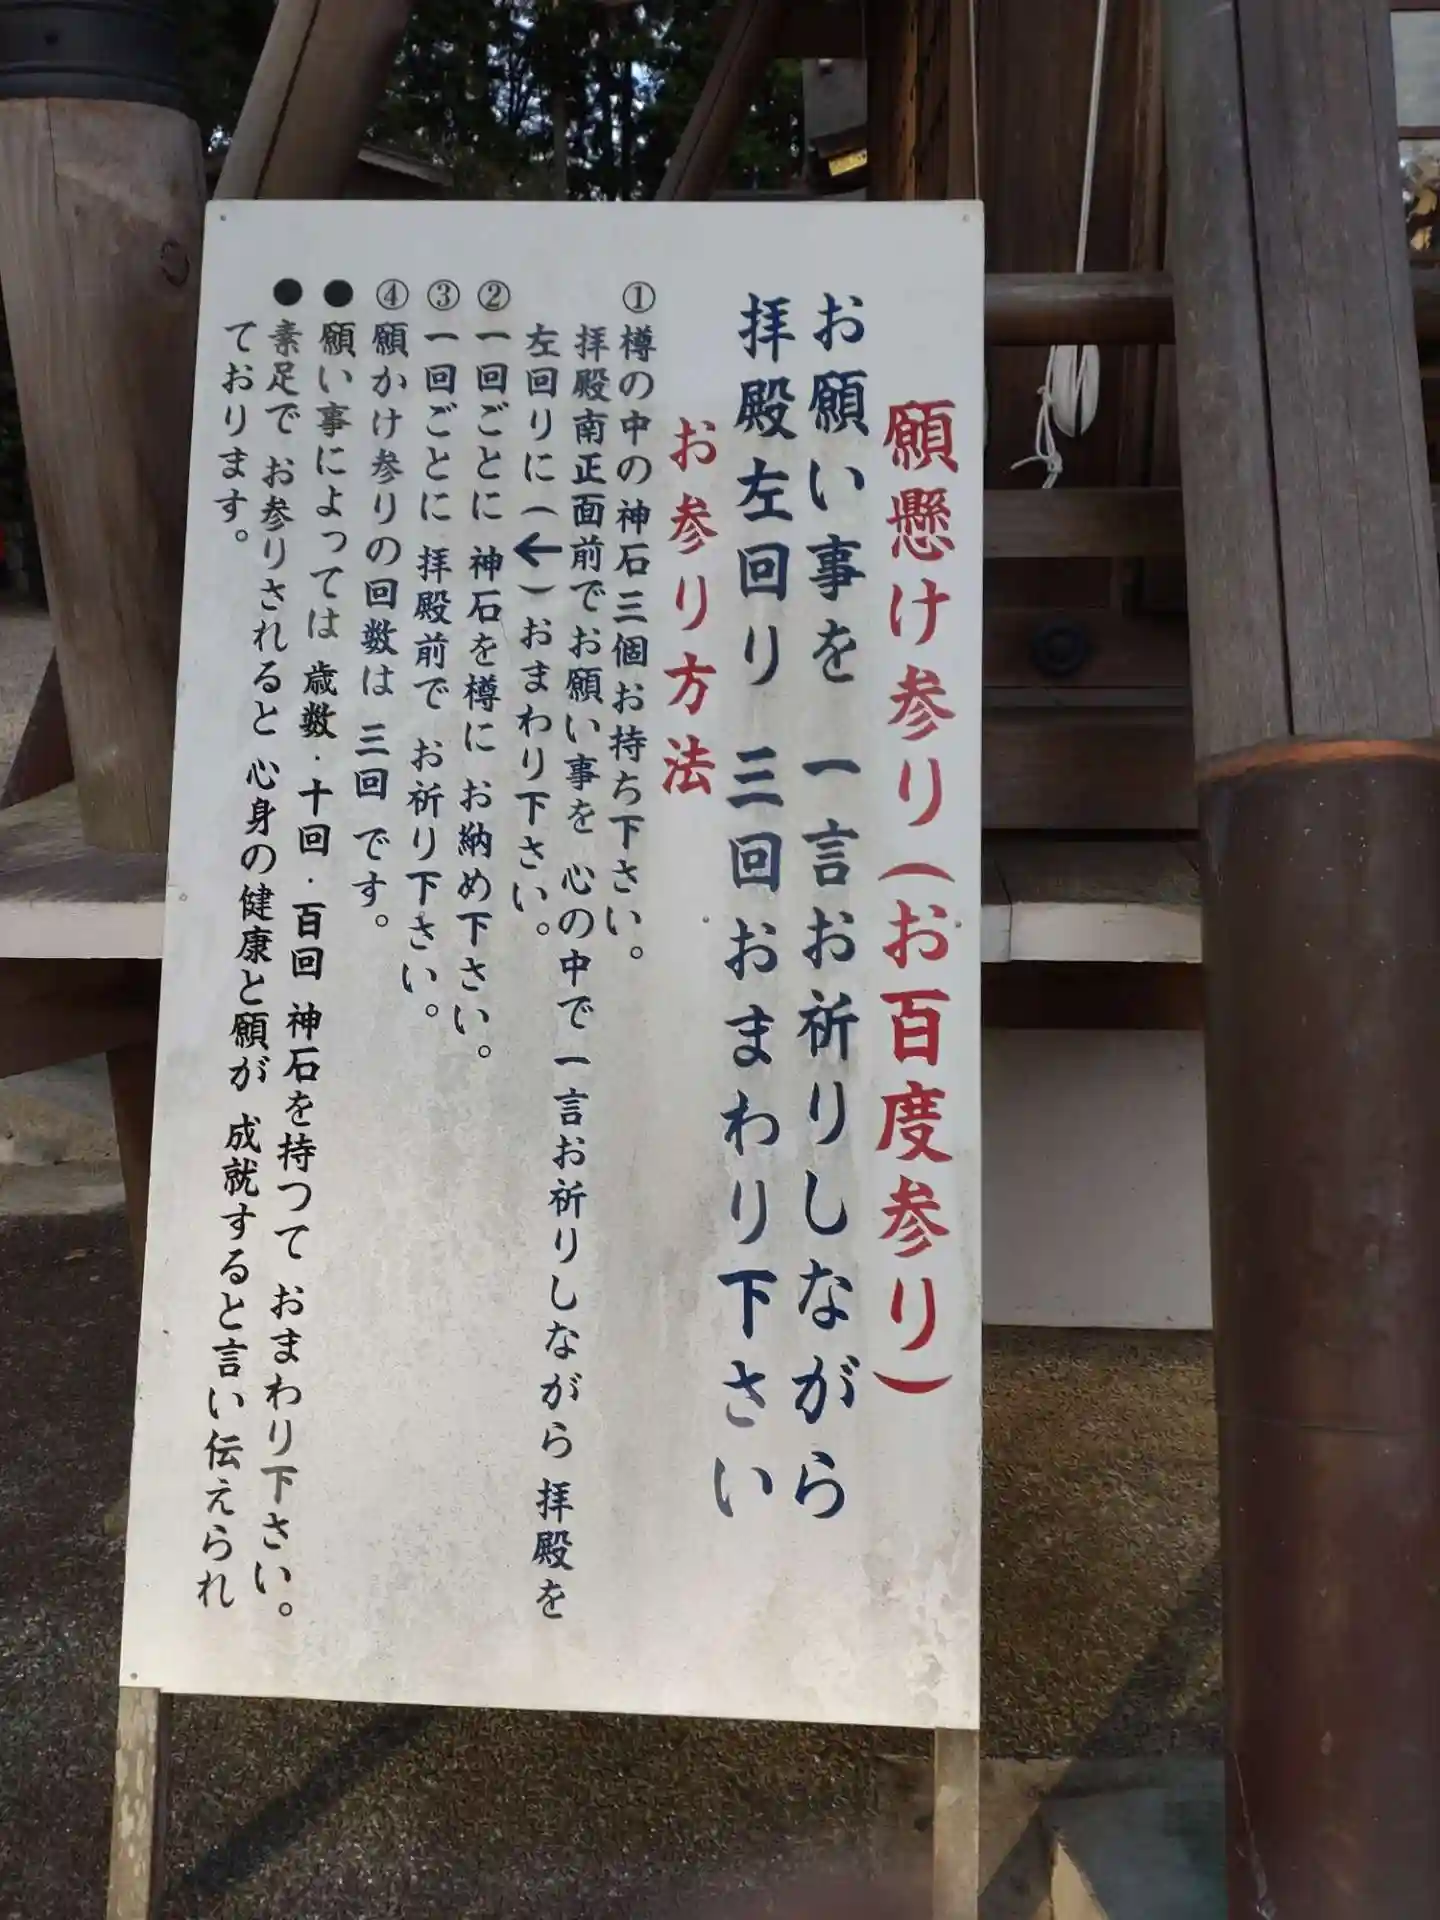 願懸け参り(お百度参り)
お願い事を 一言お祈りしながら
拝殿左回り 三回おまわり下さい
お参り方法
①樽の中の神石三個お持ち下さい。
拝殿南正面前でお願い事を 心の中で一言お祈りしながら 拝殿を
左回りに(←)おまわり下さい。
②一回ごとに 神石を樽に お納め下さい。
③一回ごとに 拝殿前で お祈り下さい。
④願かけ参りの回数は 三回 です。
●願い事によっては 歳数・十回・百回 神石を持つて おまわり下さい。
●素足で お参りされると 心身の健康と願が 成就すると言い伝えられ
ております。